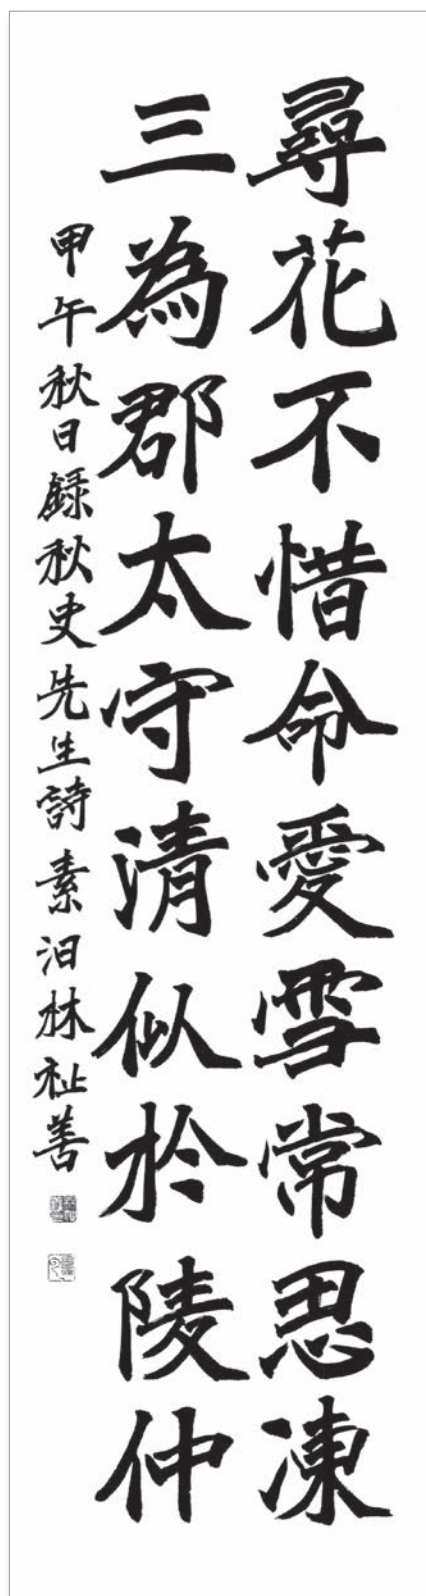 尋花不惜命愛雪常思凍
三為郡太守清似於陵仲
甲午秋日錄秋史先生詩素汩林祉善